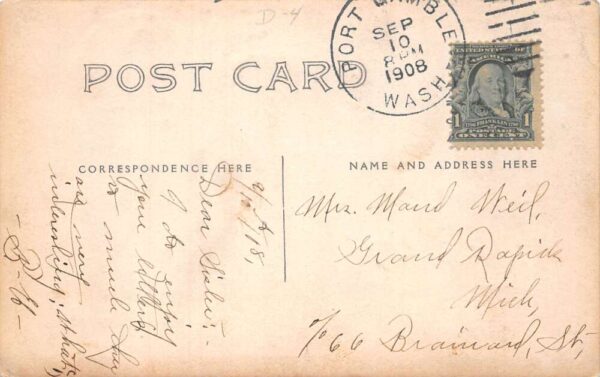 D-4
PORT GAMBLE
SEP
10
8 PM
1908
WASH.
UNITED STATES OF
AMERICA
1 FRANKLIN 1
POSTAGE
ONE CENT
POST CARD
CORRESPONDENCE HERE
NAME AND ADDRESS HERE
Dear Sister:-
I do enjoy
your letters
so much they
are very
interesting, that's
- B. H -
Mrs. Maud Weil,
Grand Rapids
Mich,
166 Brainard, St,